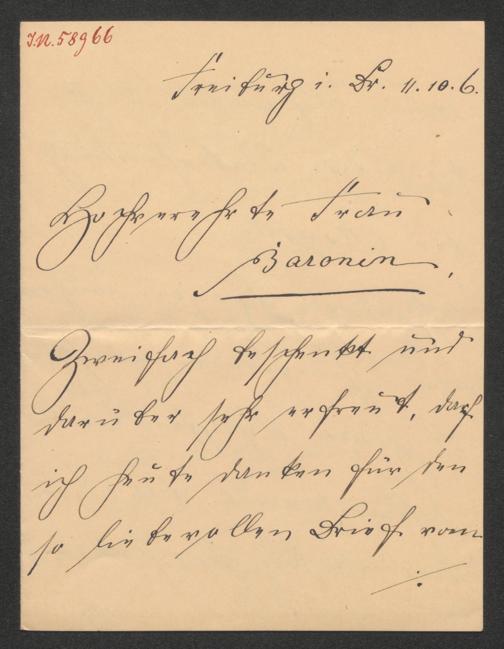 I.N. 58966
Freiburg i. Br. 11.10.6.
Hochverehrte Frau
Baronin,
Zweifach beschenkt und
darüber sehr erfreut, darf
ich heute danken für den
so liebevollen Brief vom
./.